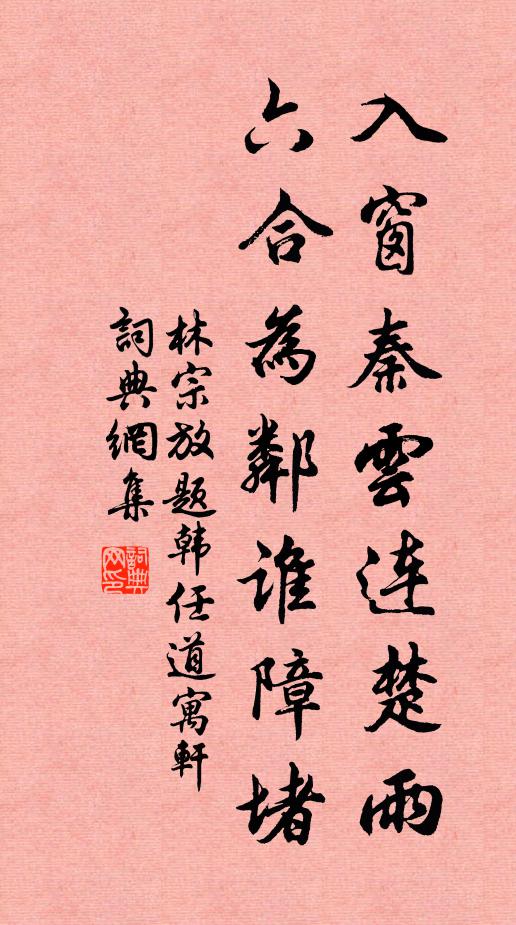 入窗秦雲连楚雨
六合為鄰谁障堵
林宗放题韩任道寓軒
詞典網集
詞典网印